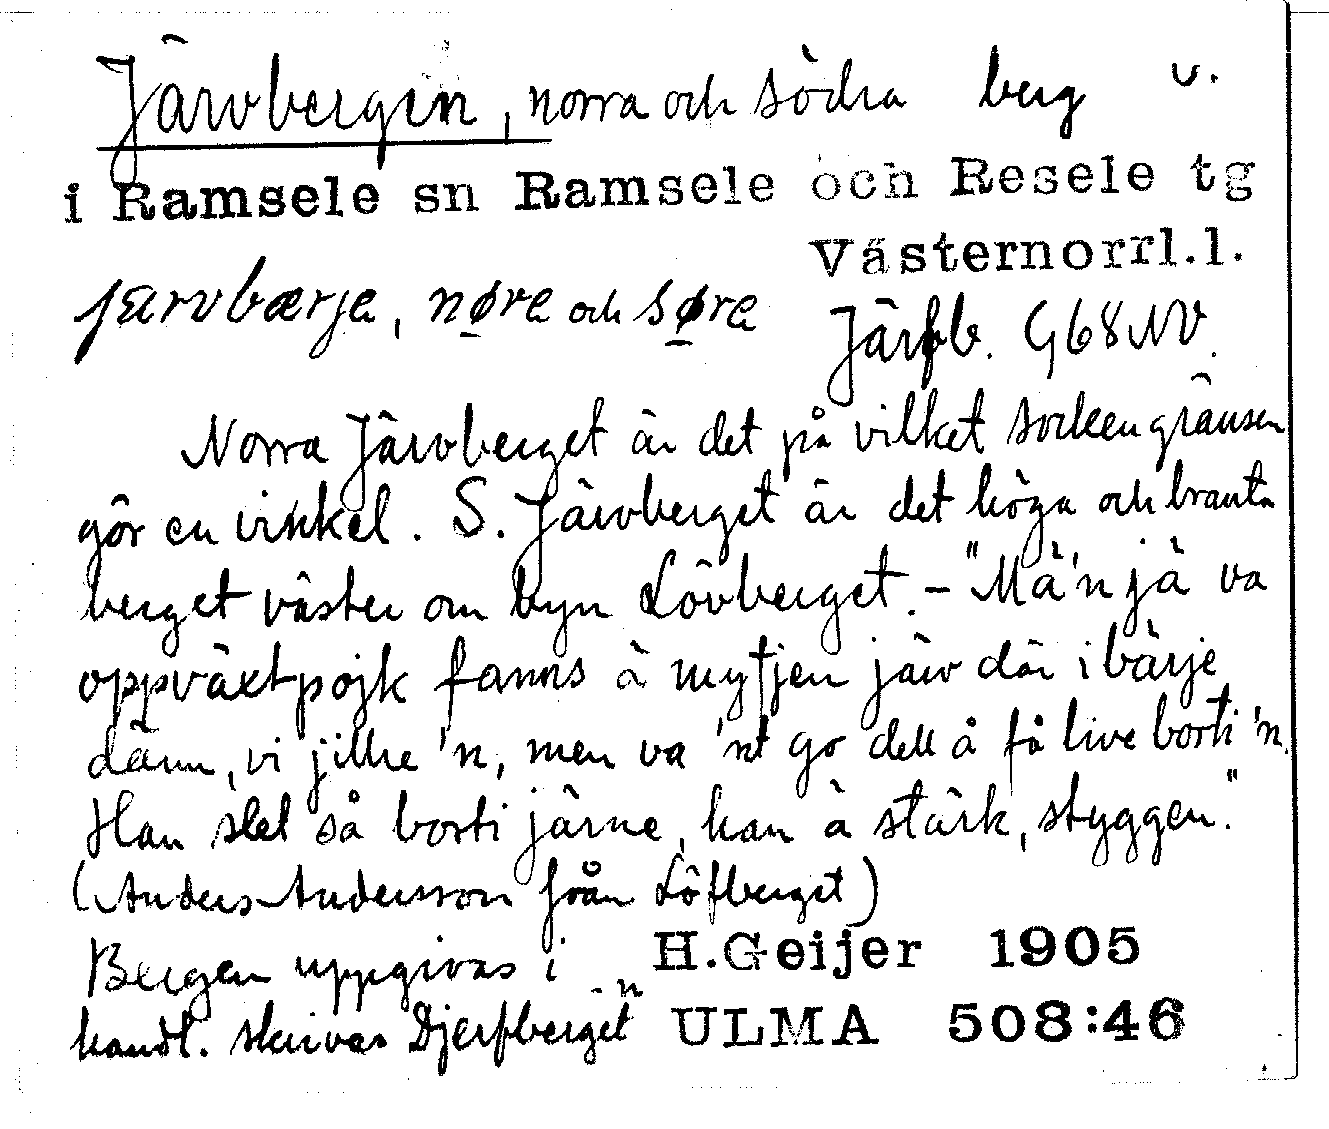 Järvbergin, norra och södra berg v.
i Ramsele sn Ramsele och Resele tg
Västernorrl.l.
jarvbærja, nøra och søra Järfb. G68NV.
Norra Järvberget är det på vilket sockengränsen
gör en vinkel. S. Järvberget är det höga och branta
berget väster om byn Lövberget. - "Mä'n jä va
oppväxtpojk fanns ä mytjen järv där i bärje
dänn, vi jillre 'n, men va 'nt go dell å få live borti 'n.
Han slet så borti järne, han ä stärk, styggen."
(Anders Andersson från Löfberget)
Bergen uppgivas i H.Geijer 1905
handl. skrivas "Djerfberget" ULMA 508:46